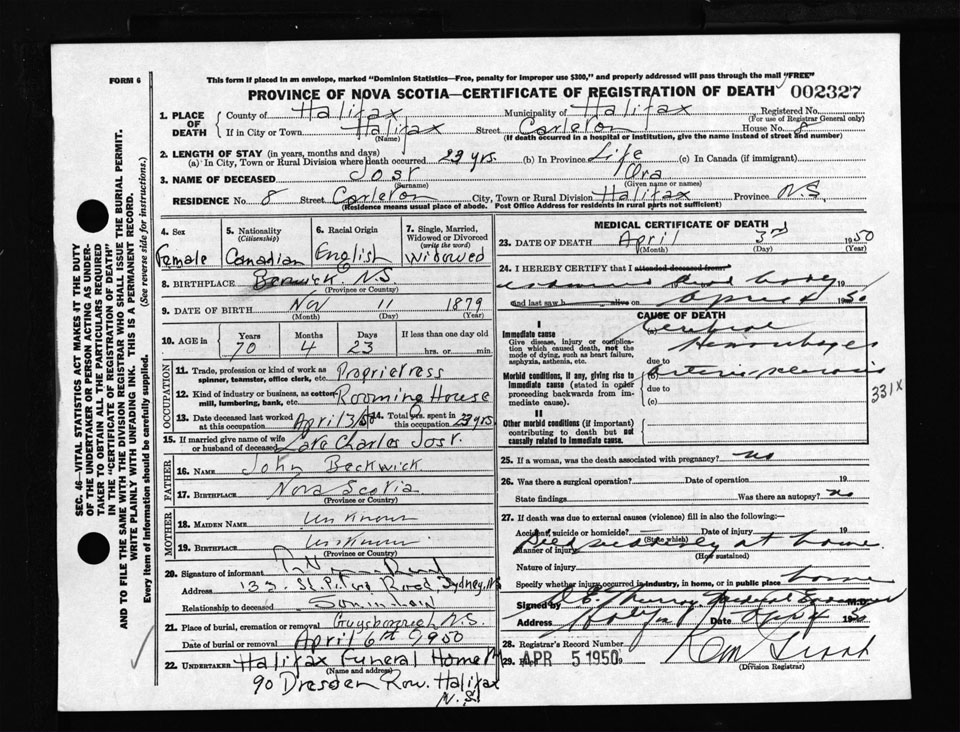 FORM 6
This form if placed in an envelope, marked "Dominion Statistics—Free, penalty for improper use $300," and properly addressed will pass through the mail "FREE"
PROVINCE OF NOVA SCOTIA—CERTIFICATE OF REGISTRATION OF DEATH 002327
1. PLACE OF DEATH
County of Halifax Municipality of Halifax Registered No.
(For use of Registrar General only)
If in City or Town Halifax Street Carleton House No. 8
(Name) (If death occurred in a hospital or institution, give the name instead of street and number)
2. LENGTH OF STAY (in years, months and days)
(a) In City, Town or Rural Division where death occurred 29 yrs. (b) In Province Life (c) In Canada (if immigrant)
3. NAME OF DECEASED Jost Ora
(Surname) (Given name or names)
RESIDENCE No. 8 Street Carleton City, Town or Rural Division Halifax Province N.S.
(Residence means usual place of abode. Post Office Address for residents in rural parts not sufficient)
4. Sex Female
5. Nationality (Citizenship) Canadian
6. Racial Origin English
7. Single, Married, Widowed or Divorced (write the word) Widowed
8. BIRTHPLACE Berwick, N.S.
(Province or Country)
9. DATE OF BIRTH Nov 11 1879
(Month) (Day) (Year)
10. AGE in Years Months Days If less than one day old
70 4 23 hrs. or min.
OCCUPATION
11. Trade, profession or kind of work as spinner, teamster, office clerk, etc. Proprietress
12. Kind of industry or business, as cotton mill, lumbering, bank, etc. Rooming House
13. Date deceased last worked at this occupation April 3/50 14. Total yrs. spent in this occupation 23 yrs.
15. If married give name of wife or husband of deceased Late Charles Jost.
FATHER
16. NAME John Beckwick
17. BIRTHPLACE Nova Scotia
(Province or Country)
MOTHER
18. MAIDEN NAME Unknown
19. BIRTHPLACE Unknown
(Province or Country)
20. Signature of informant
Address Road, Sydney, N.S.
Relationship to deceased Son in law
21. Place of burial, cremation or removal Guysborough N.S.
Date of burial or removal April 6th 1950
22. UNDERTAKER Halifax Funeral Home
(Name and address)
90 Dresden Row. Halifax
N.S.
MEDICAL CERTIFICATE OF DEATH
23. DATE OF DEATH April 3rd 1950
(Month) (Day) (Year)
24. I HEREBY CERTIFY that I attended deceased from:
examined dead body 19
and last saw h alive on April 4 1950
CAUSE OF DEATH
I
Immediate cause
Give disease, injury or complication which caused death, not the mode of dying, such as heart failure, asphyxia, asthenia, etc.
(a) Cerebral
Hemorrhages
due to
Morbid conditions, if any, giving rise to immediate cause (stated in order proceeding backwards from immediate cause).
Arteriosclerosis
due to
(c)
331X
II
Other morbid conditions (if important) contributing to death but not causally related to immediate cause.
25. If a woman, was the death associated with pregnancy? no
26. Was there a surgical operation? Date of operation 19
State findings Was there an autopsy? no
27. If death was due to external causes (violence) fill in also the following:
Accident, suicide or homicide? Date of injury 19
(State which)
Died suddenly at home
Manner of injury
(How sustained)
Nature of injury
Specify whether injury occurred in industry, in home, or in public place home
Signed by Murray Medical Examiner M.D.
Address Halifax Date Apr 1950
28. Registrar's Record Number
29. APR 5 1950
(Division Registrar)
SEC. 46—VITAL STATISTICS ACT MAKES IT THE DUTY
OF THE UNDERTAKER OR PERSON ACTING AS UNDERTAKER TO OBTAIN ALL THE PARTICULARS REQUIRED
IN THE "CERTIFICATE OF REGISTRATION OF DEATH"
AND TO FILE THE SAME WITH THE DIVISION REGISTRAR WHO SHALL ISSUE THE BURIAL PERMIT.
WRITE PLAINLY WITH UNFADING INK. THIS IS A PERMANENT RECORD.
Every item of information should be carefully supplied. (See reverse side for instructions.)